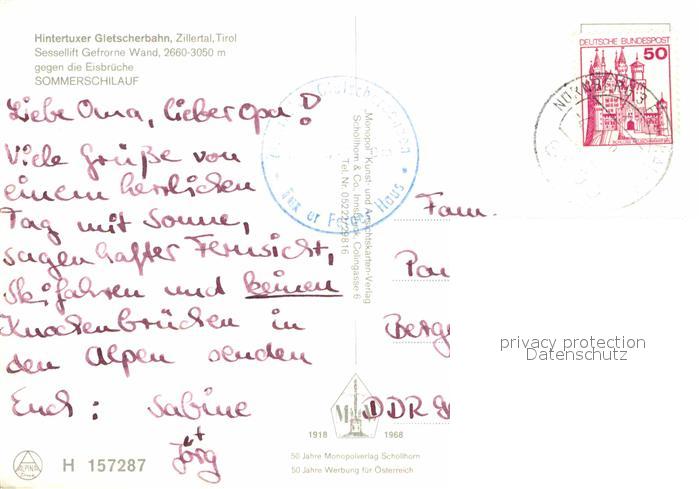 Hintertuxer Gletscherbahn, Zillertal, Tirol
Sessellift Gefrorne Wand, 2660-3050 m
gegen die Eisbrüche
SOMMERSCHILAUF
Liebe Oma, lieber Opa!
Viele Grüße von
einem herrlichen
Tag mit Sonne,
sagenhafter Fernsicht,
Skifahren und keinen
Knochenbrüchen in
den Alpen senden
Euch: Sabine
+
Jörg
H 157287
ALPINA
"Monopol" Kunst- und Ansichtskarten-Verlag
Schöllhorn & Co., Innsbruck, Colingasse 6
Tel. Nr. 05222/29816
Tuxer Haus
1918 1968
50 Jahre Monopolverlag Schöllhorn
50 Jahre Werbung für Österreich
DEUTSCHE BUNDESPOST
50
Fam.
Berg
DDR
privacy protection
Datenschutz